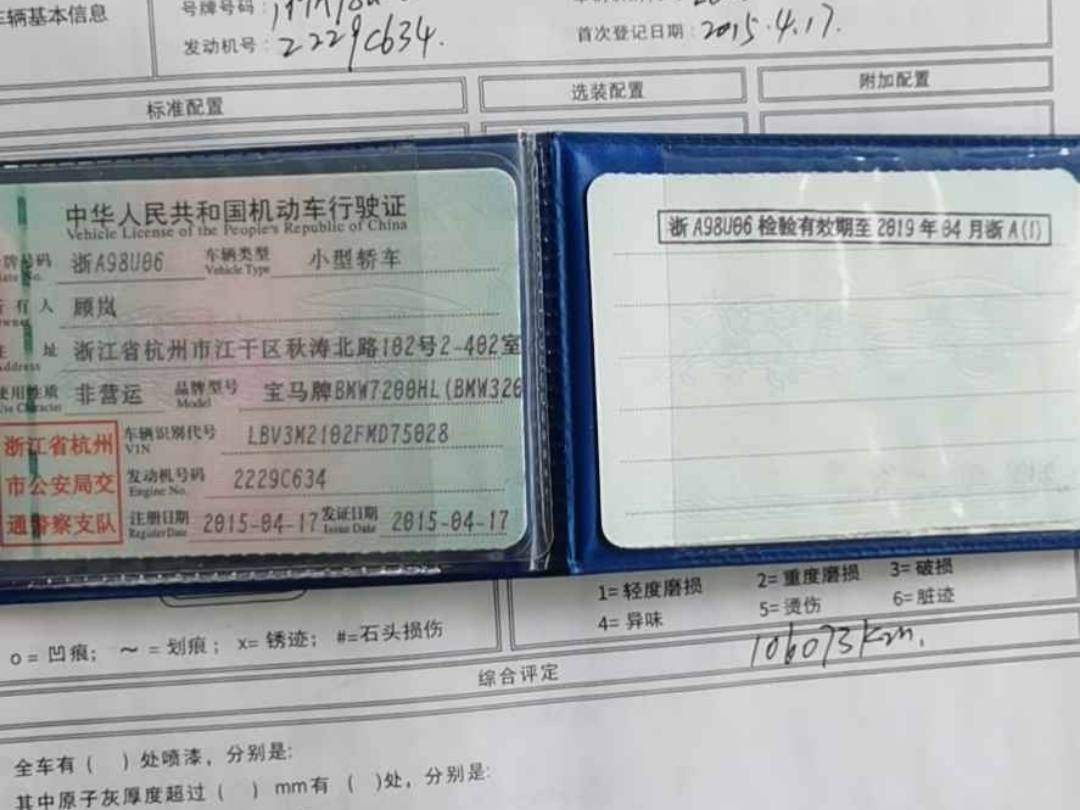 车辆基本信息
号牌号码：
发动机号：2229C634.
首次登记日期：2015.4.17.
标准配置
选装配置
附加配置
中华人民共和国机动车行驶证
Vehicle License of the People's Republic of China
牌号码 浙A98U06 车辆类型 小型轿车
Plate No. Vehicle Type
有人 顾岚
Owner
住址 浙江省杭州市江干区秋涛北路182号2-402室
Address
使用性质 非营运 品牌型号 宝马牌BMW7200HL(BMW320
Use Character Model
浙江省杭州
市公安局交
通警察支队
车辆识别代号 LBV3M2102FMD75028
VIN
发动机号码 2229C634
Engine No.
注册日期 2015-04-17 发证日期 2015-04-17
Register Date Issue Date
浙A98U06 检验有效期至2019年04月浙A(1)
1=轻度磨损 2=重度磨损 3=破损
4=异味 5=烫伤 6=脏迹
o=凹痕； ～=划痕； x=锈迹； #=石头损伤
106073km.
综合评定
全车有（ ）处喷漆，分别是:
其中原子灰厚度超过（ ）mm有（ ）处，分别是: